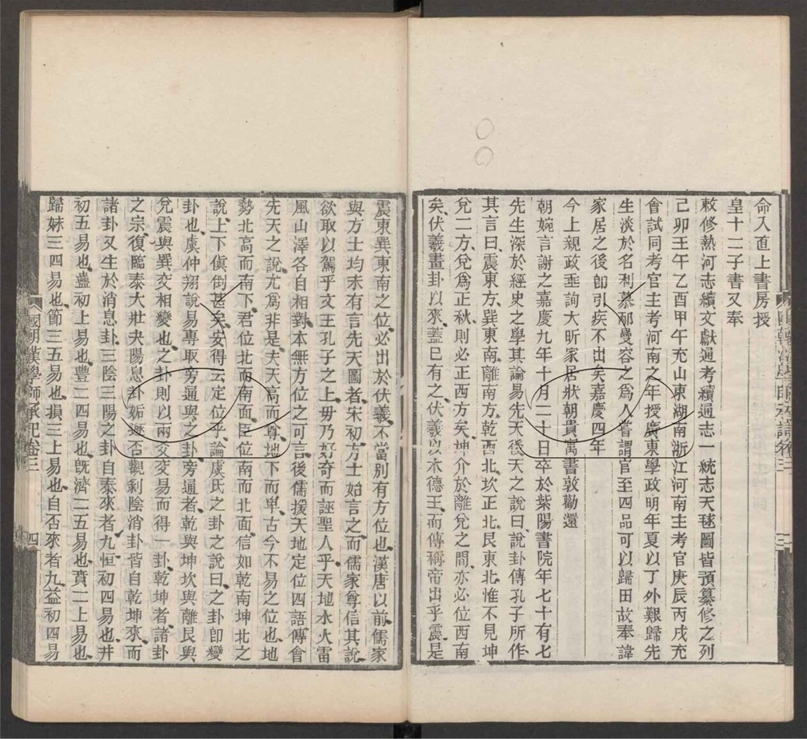 命入直上書房授
皇十二子書又奉
敕修熱河志續文獻通考續通志一統志天毬圖皆預纂修之列
己卯壬午乙酉甲午充山東湖南浙江河南主考官庚辰丙戌充
會試同考官主考河南之年授廣東學政明年夏以丁外艱歸先
生淡於名利慕邴曼容之為人嘗謂官至四品可以歸田故奉諱
家居之後卽引疾不出矣嘉慶四年
今上親政垂詢大昕家居狀朝貴寓書敦勸還
朝婉言謝之嘉慶九年十月二十日卒於紫陽書院年七十有七
先生深於經史之學其論易先天後天之說曰說卦傳孔子所作
其言曰震東方巽東南離南方乾西北坎正北艮東北惟不見坤
兌二方兌爲正秋則必正西方矣坤介於離兌之間亦必位西南
矣伏羲畫卦以來蓋已有之伏羲以木德王而傳稱帝出乎震是
三
震東巽東南之位必出於伏羲不當別有方位也漢唐以前儒家
與方士均未有言先天圖者宋初方士始言之而儒家尊信其說
欲取以駕乎文王孔子之上毋乃好奇而誣聖人乎天地水火雷
風山澤各自相對本無方位之可言後儒援天地定位四語傅會
先天之說尤爲非是夫天高而尊地下而卑古今不易之位也地
勢北高而南下君位北而南面臣位南而北面信如乾南坤北之
說上下傎倒甚矣安得云定位乎論虞氏之卦之說曰之卦卽變
卦也虞仲翔說易專取旁通與之卦旁通者乾與坤坎與離艮與
兌震與巽交相變也之卦則以兩爻交易而得一卦乾坤者諸卦
之宗復臨泰大壯夬陽息卦姤遯否觀剝陰消卦皆自乾坤來而
諸卦又生於消息卦三陰三陽之卦自泰來者九恒初四易也井
初五易也蠱初上易也豐二四易也旣濟二五易也賁二上易也
歸妹三四易也節三五易也損三上易也自否來者九益初四易
國朝漢學師承記卷三
四